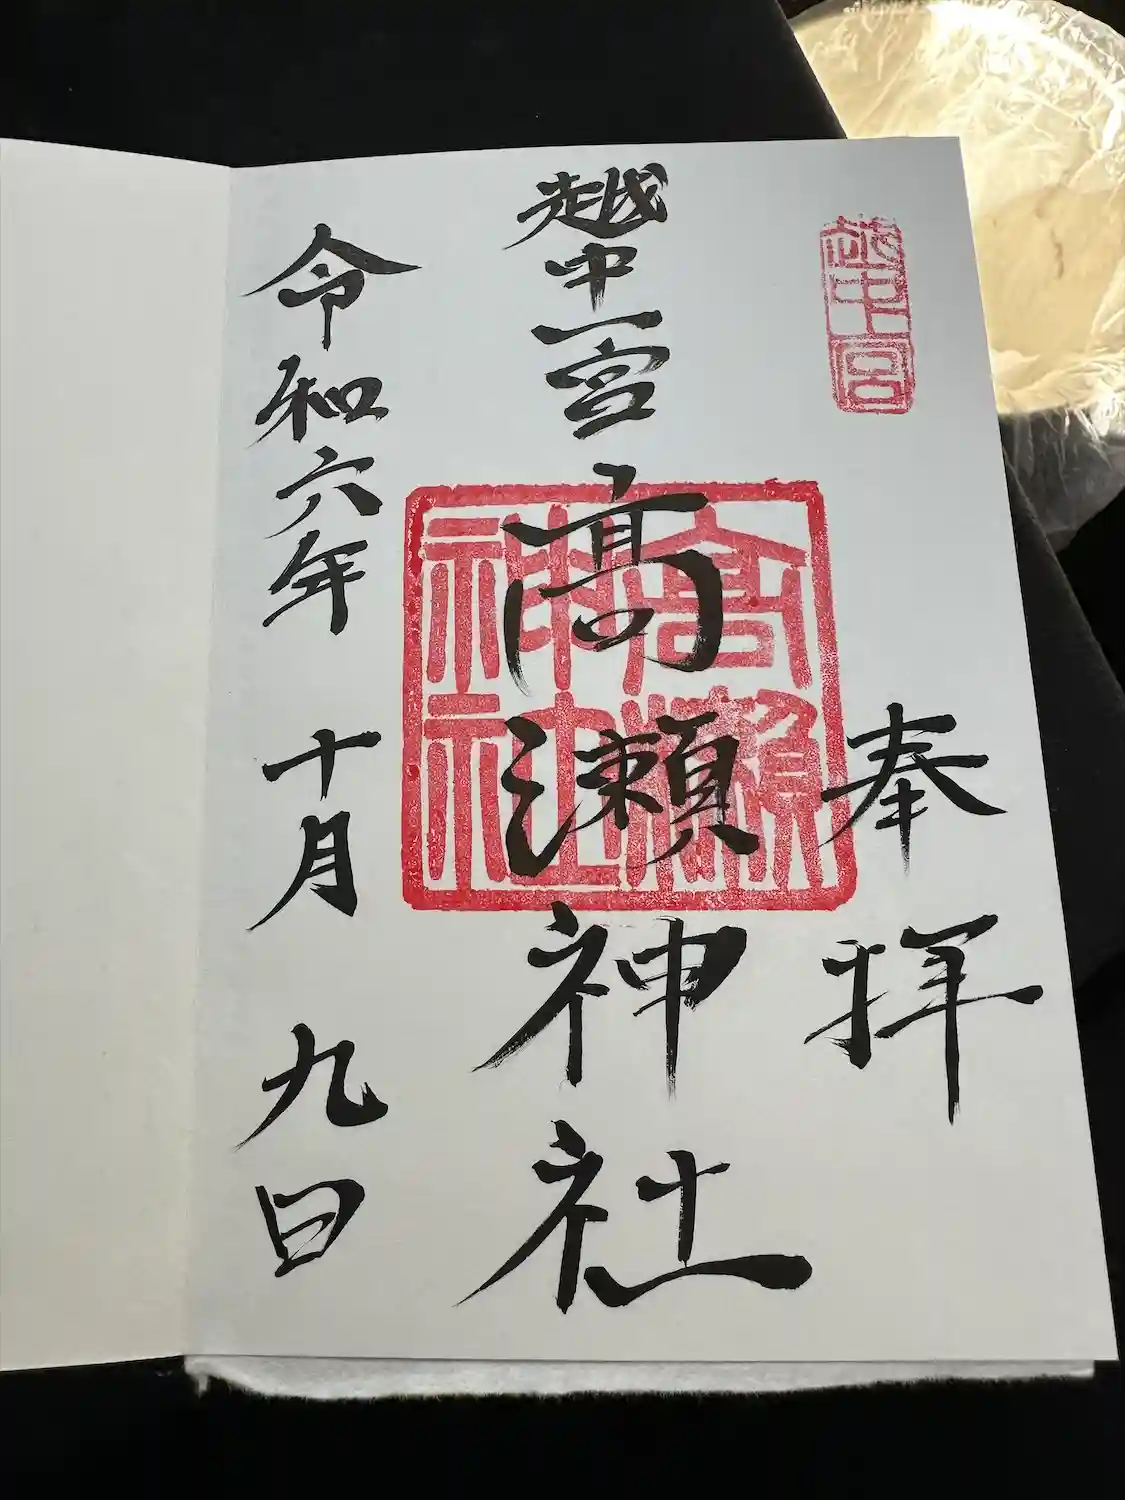 越中一宮
奉拝
越中一宮高瀬神社
高瀬
神社
令和六年十月九日